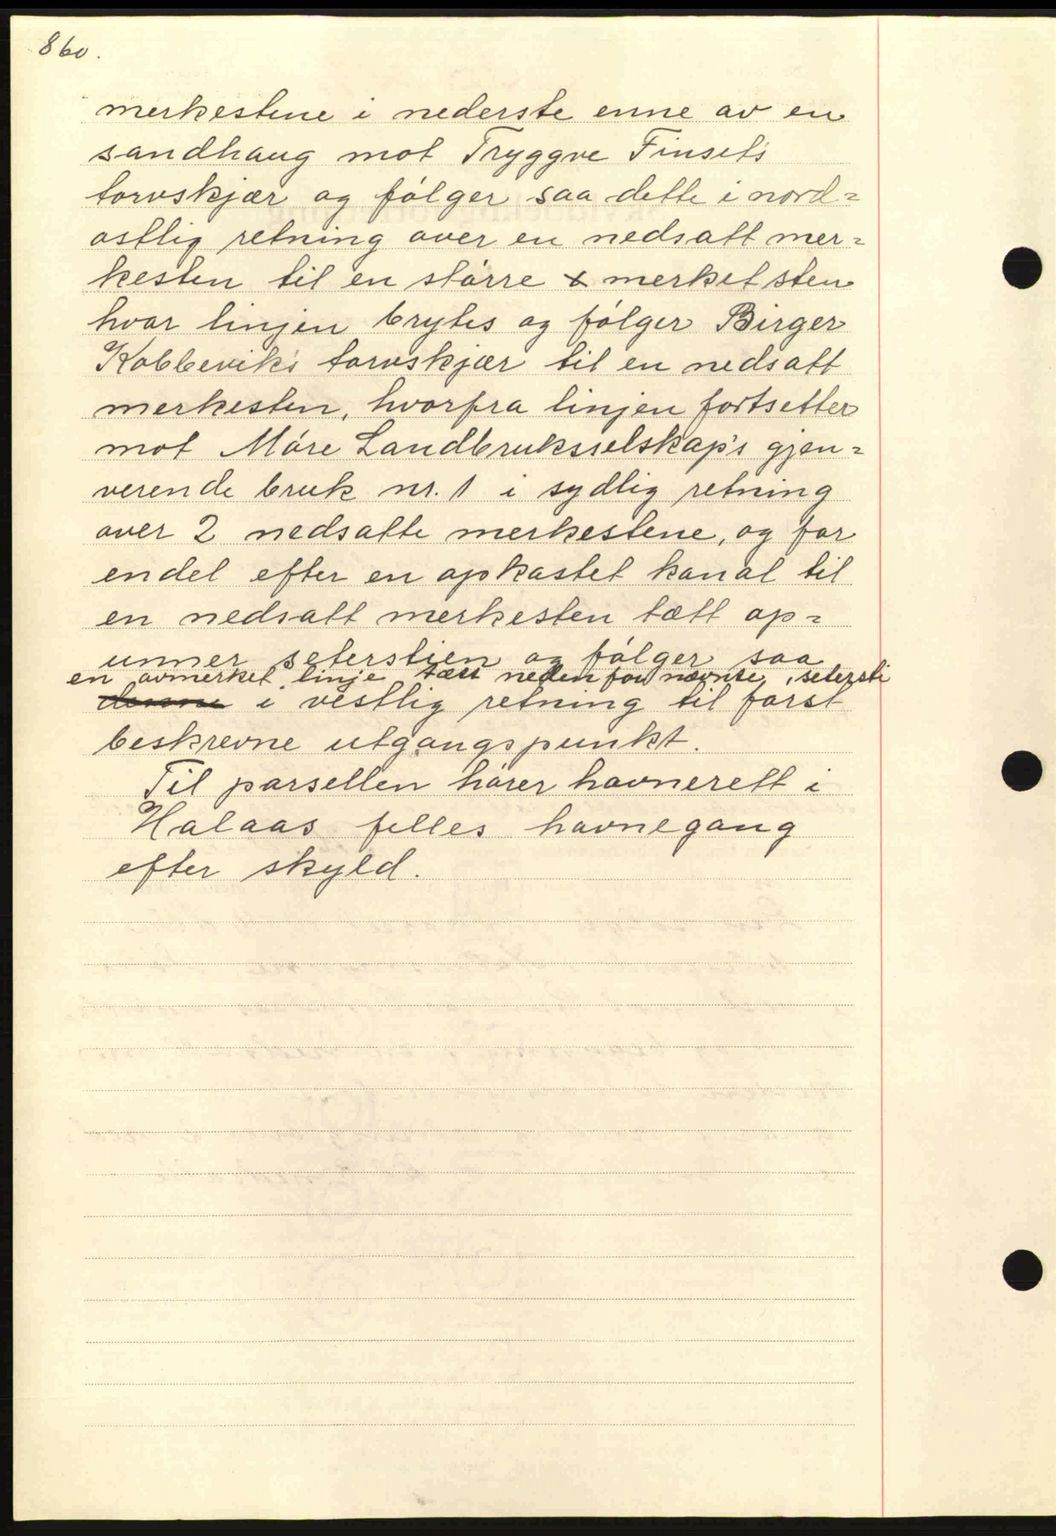 860.
merkestene i nederste enne av en
sandhaug mot Tryggve Finsets
torvskjær og følger saa dette i nord=
østlig retning over en nedsatt mer=
kesten til en større x merket sten
hvor linjen brytes og følger Birger
Kobbevik's torvskjær til en nedsatt
merkesten, hvorfra linjen fortsetter
mot Møre Landbruksselskap's gjen=
verende bruk nr. 1 i sydlig retning
over 2 nedsatte merkestene, og for
endel efter en opkastet kanal til
en nedsatt merkesten tætt op=
unner seterstien og følger saa
en avmerket linje tætt nedenfor nævnte setersti
denne i vestlig retning til først
beskrevne utgangspunkt.
Til parsellen hører havnerett i
Halaas felles havnegang
efter skyld.